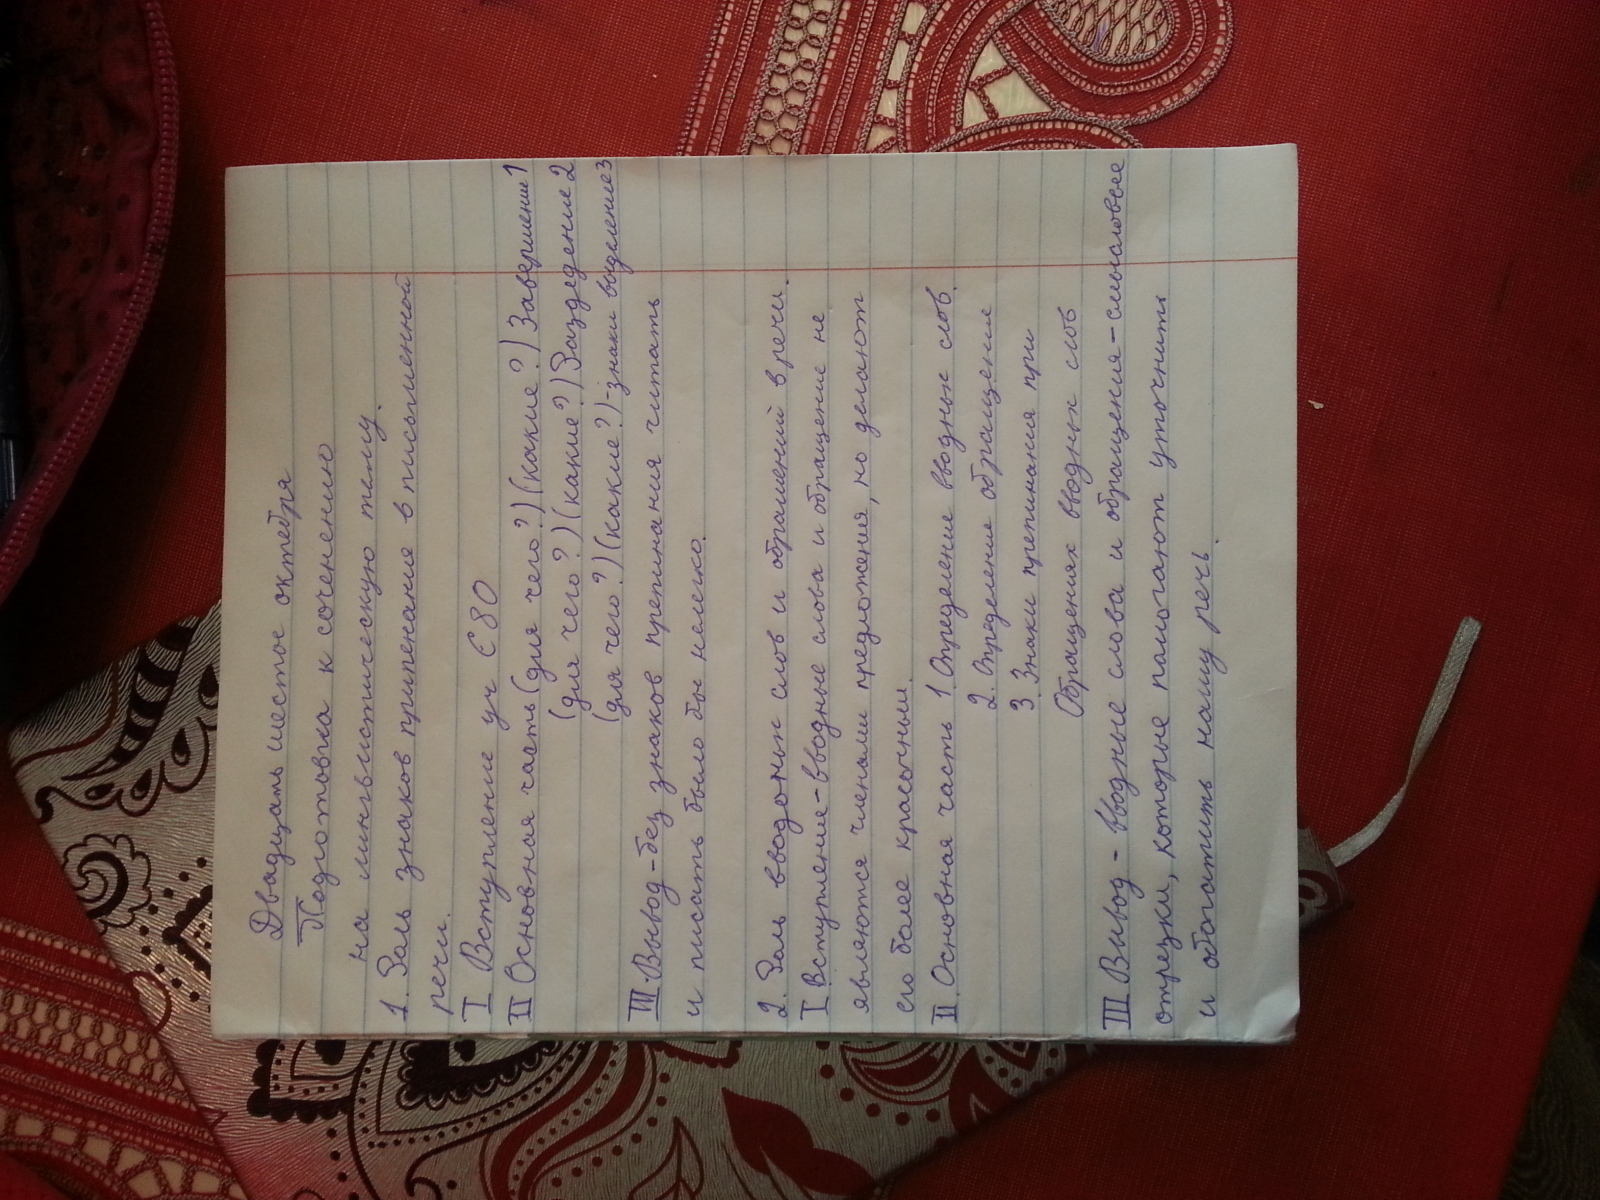 Двадцать шестое октебря
Подготовка к соченению
на лингвистическую тему.
1. Роль знаков припенание в письменной
речи.
I Вступление уч с 80
II Основная часть (для чего?) (какие?) Завершении 1
(для чего?) (какие?) Разделение 2
(для чего?) (какие?) - знаки выделение 3
III. Вывод - без знаков препинания читать
и писать было бы нелегко.
2. Роль вводных слов и обращений в речи.
I Вступление - вводные слова и обращение не
являются членами предложения, но делают
его более красочным.
II. Основная часть 1 Определение вводных слов.
2. Определение обращения
3 Знаки препинания при
Обращениях вводных слов
III Вывод - вводные слова и обращения - смысловые
отрезки, которые памогают уточнить
и обогатить нашу речь.